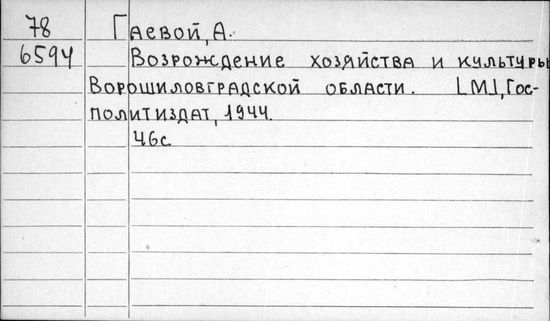 78 Гаевой, А.
6594 Возрождение хозяйства и культуры
Ворошиловградской области. [М], Гос-
политиздат, 1944.
46с.